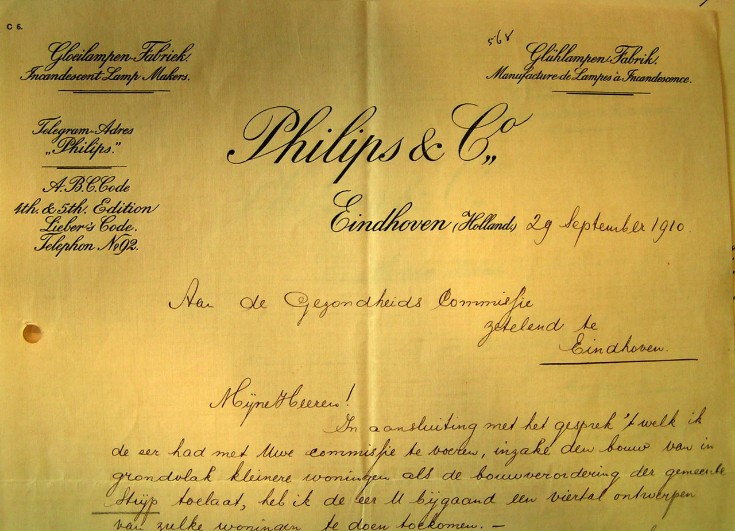 C 6.
568
Gloeilampen-Fabriek.
Incandescent Lamp Makers.
Glühlampen-Fabrik.
Manufacture de Lampes à Incandescence.
Telegram-Adres
„Philips."
A.B.C. Code
4th. & 5th. Edition
Lieber's Code.
Telephon No. 92.
Philips & Co„
Eindhoven (Holland) 29 September 1910.
Aan de Gezondheids Commissie
zetelend te
Eindhoven.
Mijne Heeren!
In aansluiting met het gesprek 't welk ik
de eer had met Uwe commissie te voeren, inzake den bouw van in
grondvlak kleinere woningen als de bouwverordering der gemeente
Strijp toelaat, heb ik de eer U bijgaand een viertal ontwerpen
van zulke woningen te doen toekomen. —